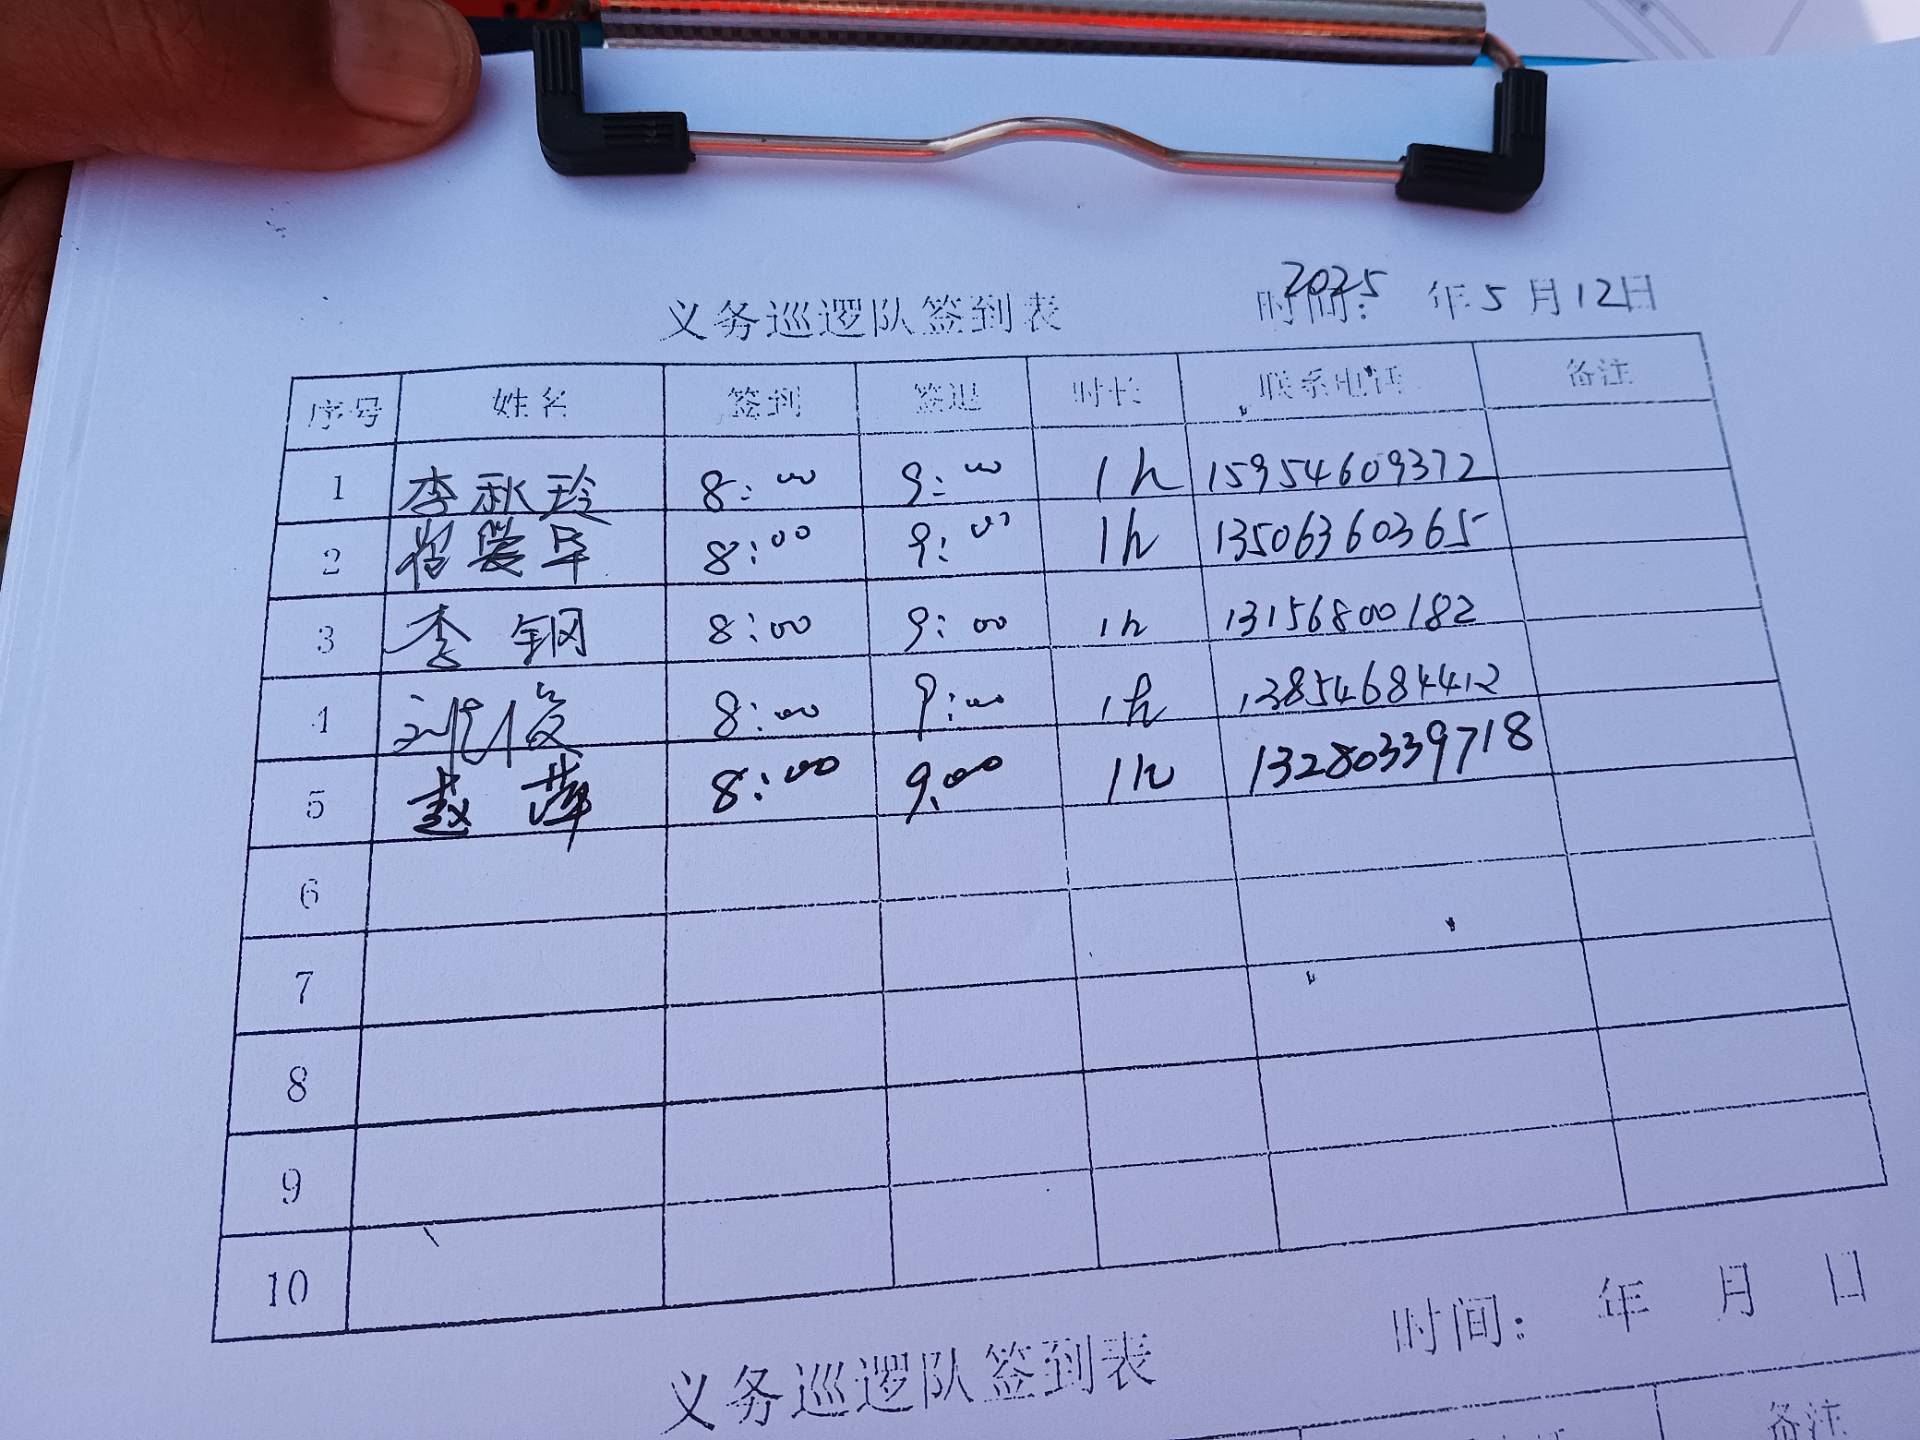 义务巡逻队签到表 时间: 2025年5月12日
序号 姓名 签到 签退 时长 联系电话 备注
1 李秋玲 8:00 9:00 1h 15954609372
2 8:00 9:00 1h 13506360365
3 李钢 8:00 9:00 1h 13156800182
4 刘俊 8:00 9:00 1h 13854684412
5 赵萍 8:00 9:00 1h 13280339718
6
7
8
9
10
时间: 年 月 日
义务巡逻队签到表
备注